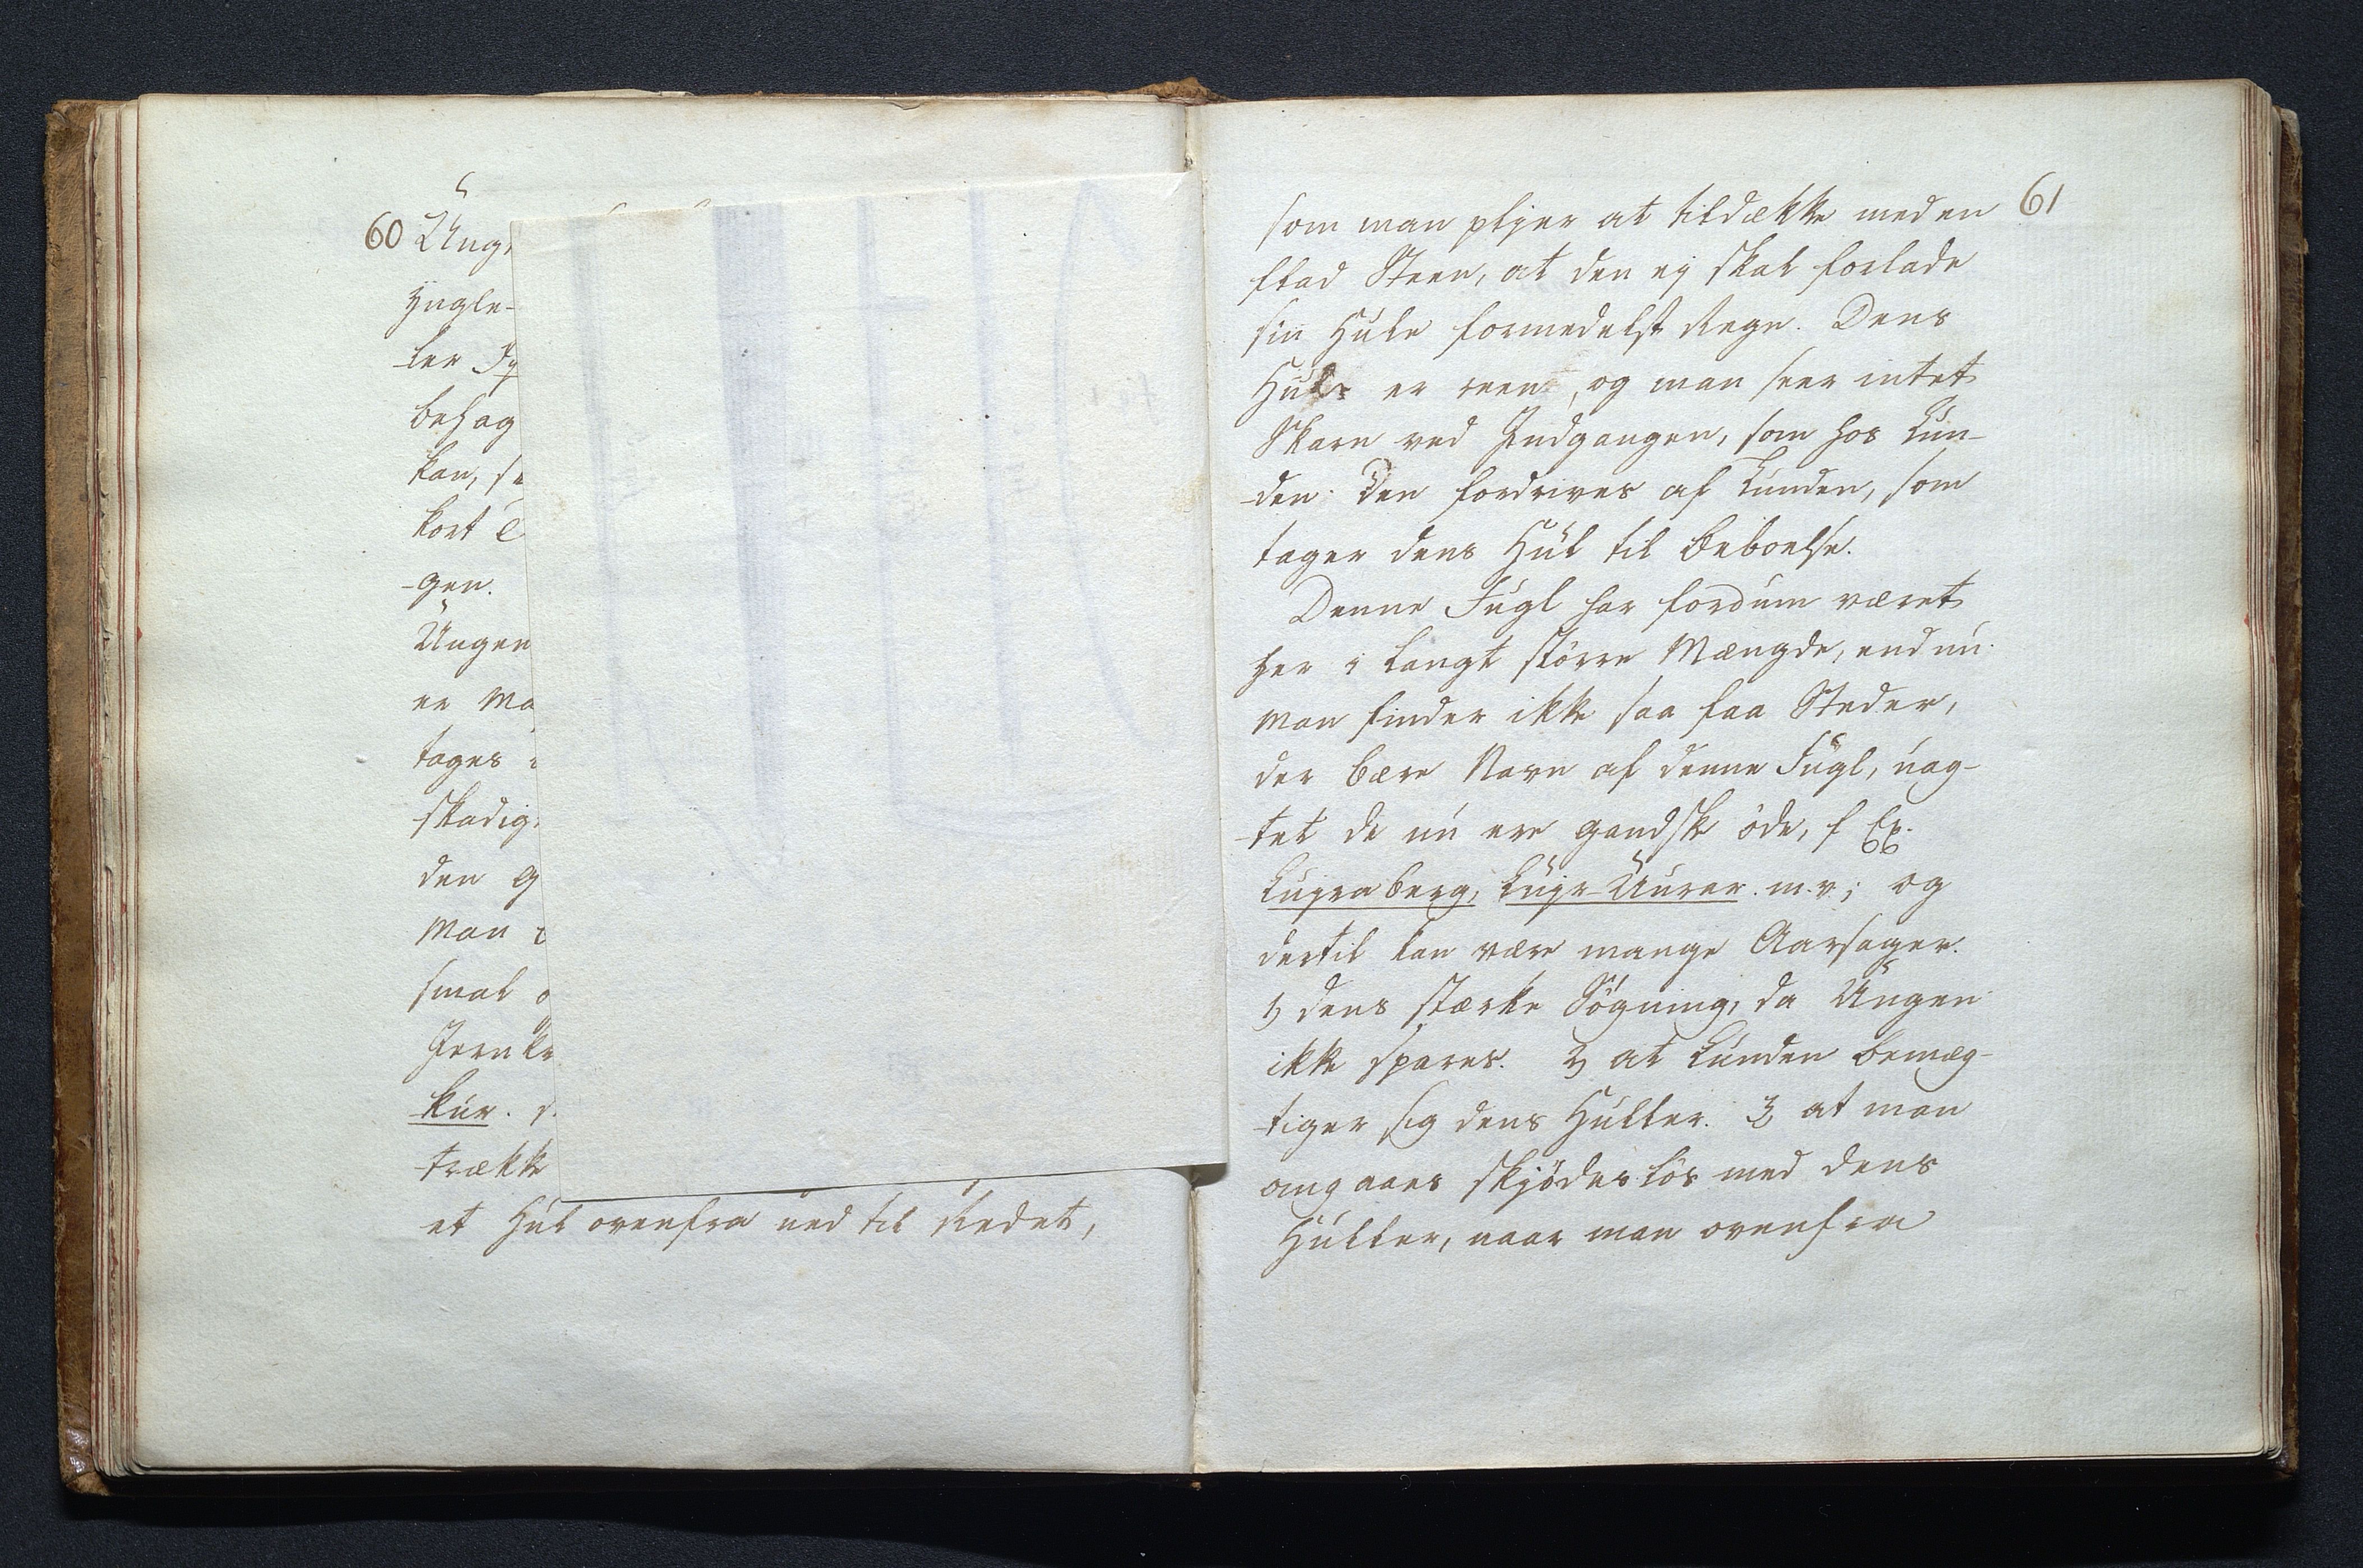 60
Ung
yngle-
ler
behag
kan,
kort
gen.
Ungen
er
tages
skadig
den
Man
smal
Jernkr
kur.
trækk
et Hul ovenfra ned til Redet,
61
som man plejer at tildække med en
flad Steen, at den ej skal forlade
sin Hule formedelst Regn. Dens
Hule er reen, og man seer intet
Skarn ved Indgangen, som hos Lun-
den. Den fordrives af Lunden, som
tager dens Hul til Beboelse.
Denne Fugl har fordum været
her i langt större Mængde, end nu.
Man finder ikke saa faa Steder,
der bære Navn af denne Fugl, uag-
tet de nu ere gandske öde, f Ex.
Lujraberg, Lujr-Uurer. m. v.; og
dertil kan være mange Aarsager.
1) dens stærke Sögning, da Ungen
ikke spares. 2) at Lunden bemæg-
tiger sig dens Huller. 3) at man
omgaaes skjödeslös med dens
Huller, naar man ovenfra